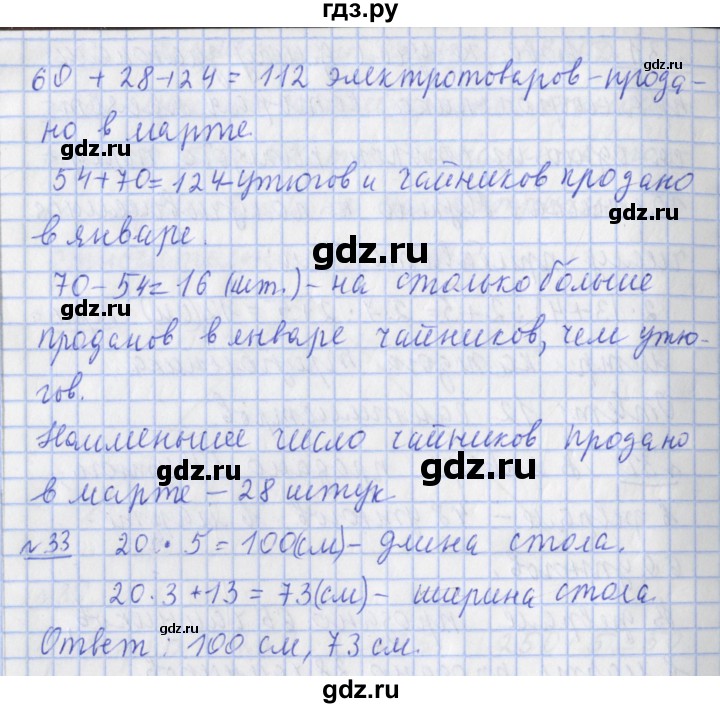 гдз.ру
60 + 28 + 24 = 112 электротоваров - прода-
но в марте.
gdz.ru
gdz.ru
54+70=124-утюгов и чайников продано
gdz.ru
в январе.
gdz.ru
70-54=16 (шт.)-на столько больше
проданов в январе чайников, чем утю-
гов.
gdz.ru
gdz.ru
Наименьшее число чайников продано
gdz.ru
gdz.ru
в марте - 28 штук
№33 20 · 5 = 100(см)- длина стола.
gdz.ru
gdz.ru
20·3+13 = 73(см)- ширина стола.
Ответ: 100 см, 73 см.
gdz.ru
gdz.ru